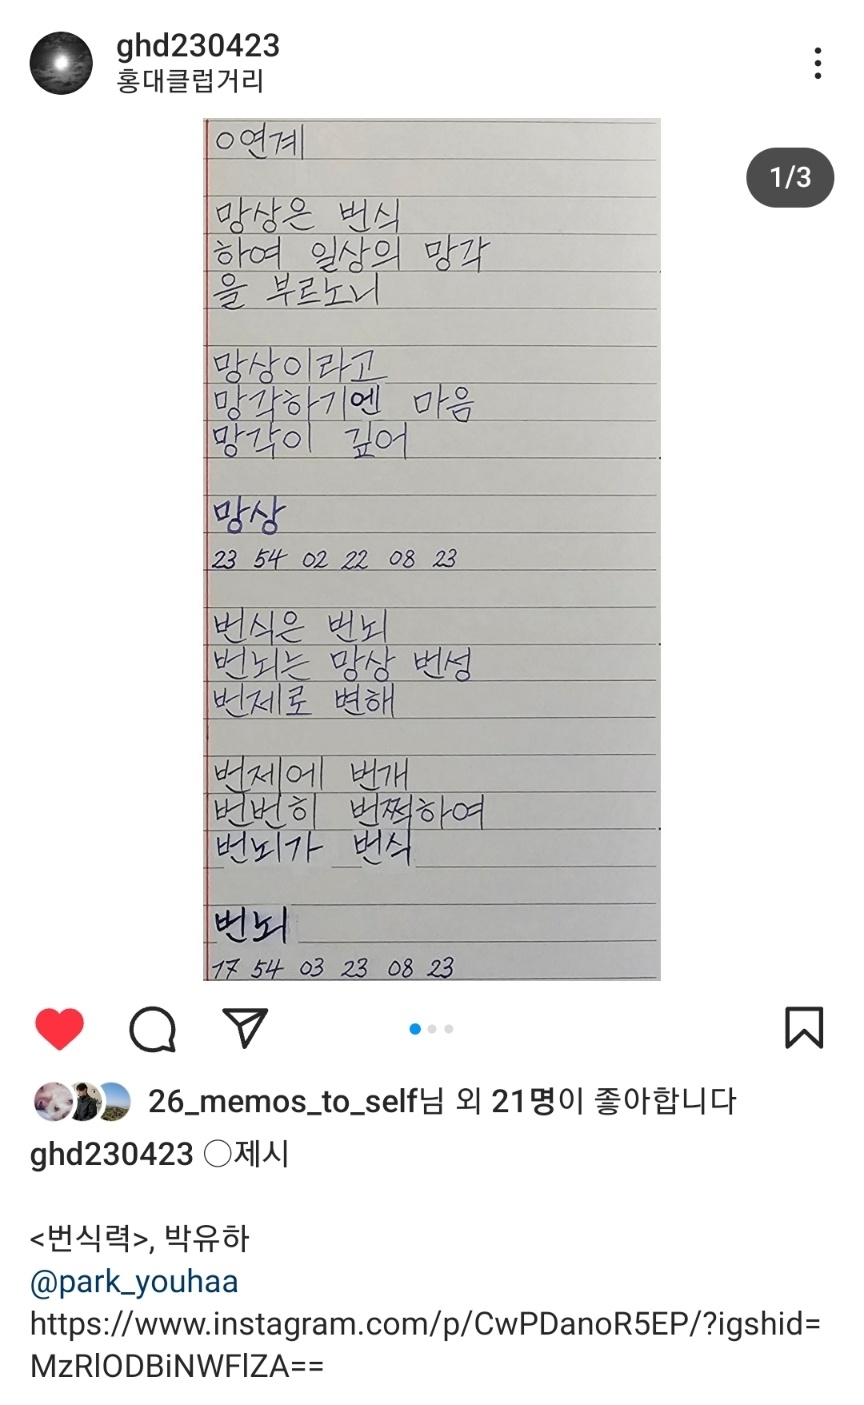 ghd230423
홍대클럽거리
1/3
○연계
망상은 번식
하여 일상의 망각
을 부르노니
망상이라고
망각하기엔 마음
망각이 깊어
망상
23 54 02 22 08 23
번식은 번뇌
번뇌는 망상 번성
번제로 변해
번제에 번개
번번히 번쩍하여
번뇌가 번식
번뇌
17 54 03 23 08 23
26_memos_to_self님 외 21명이 좋아합니다
ghd230423 ◯제시
<번식력>, 박유하
@park_youhaa
https://www.instagram.com/p/CwPDanoR5EP/?igshid=
MzRlODBiNWFlZA==